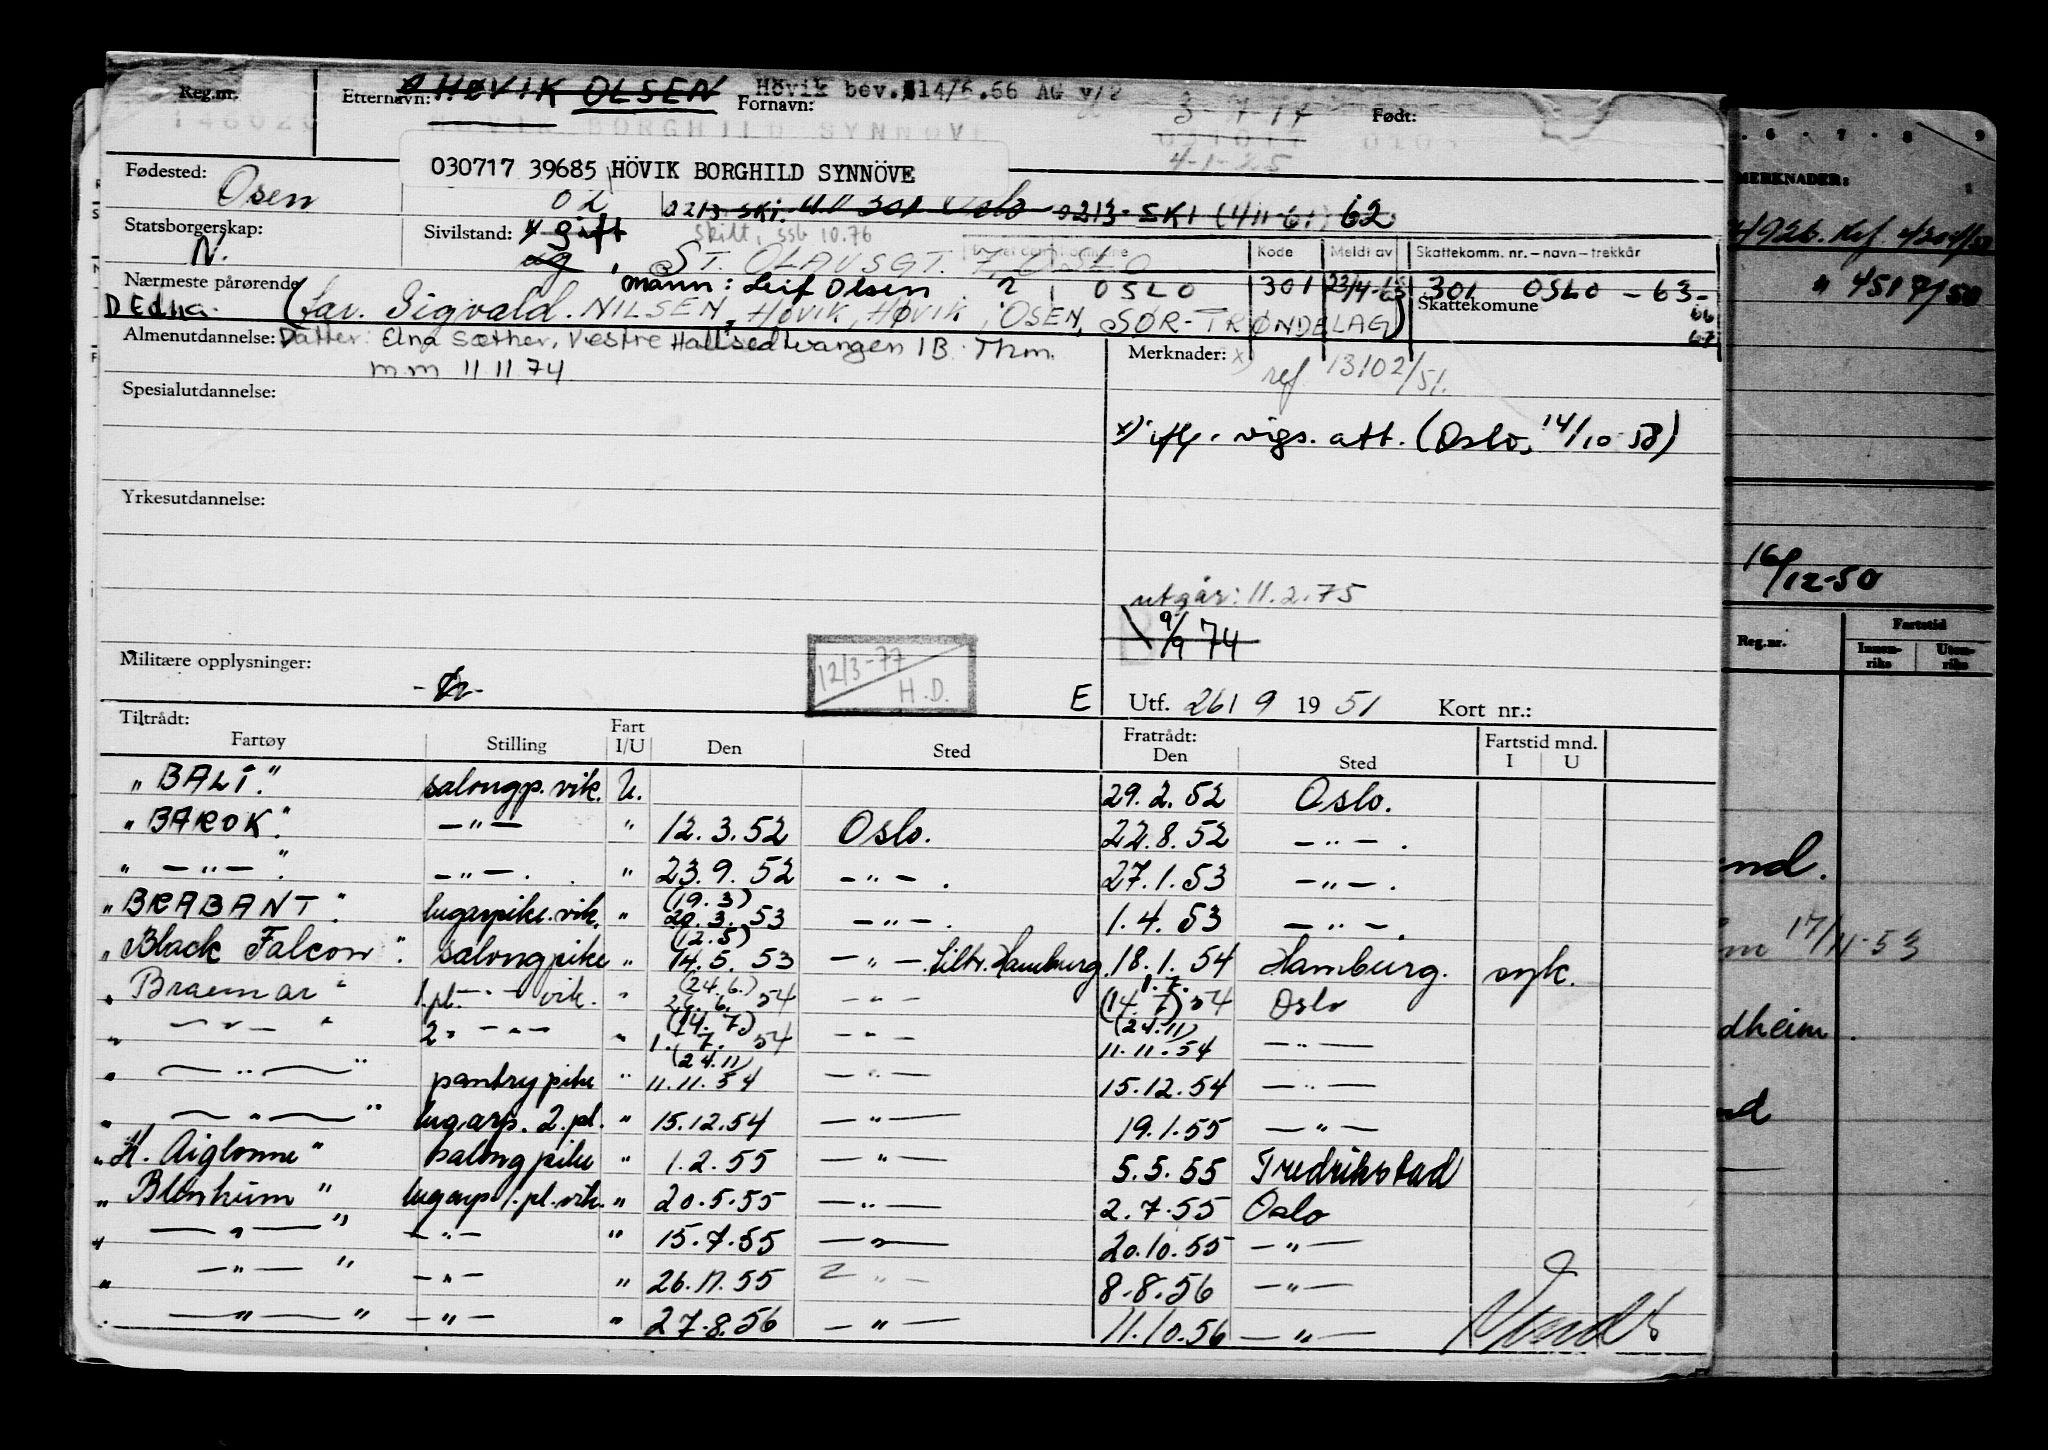 Reg.nr.
Etternavn: HØVIK OLSEN
Hövik bev. 14/6.66 AG
Fornavn:
3-7-17
Født:
HØVIK BORGHILD SYNNØVE
4-1-25
030717 39685 HÖVIK BORGHILD SYNNÖVE
Fødested: Osen
02
0213 SKI. Oslo 0213 SKI (4/11-61) 62
Statsborgerskap: N.
Sivilstand: x gift
ug
skilt, ssb 10.76
ST. OLAVSGT. 7, OSLO
Kode
Meldt av
Skattekomm. nr. – navn – trekkår
Nærmeste pårørende
mann: Leif Olsen
2 OSLO
301
23/4-63
301 OSLO - 63-
66
67
Skattekomune
D Edna.
(far. Sigvald. NILSEN, HØVIK, HØVIK, OSEN, SØR-TRØNDELAG)
Almenutdannelse: Datter: Elna Sæther, Vestre Hallsedtvangen 1B Thm.
mm 11 11 74
Merknader: x)
ref 13102/51.
Spesialutdannelse:
x) ifl. vigs. att. (Oslo, 14/10 58)
Yrkesutdannelse:
utgår: 11.2.75
9/9 74
Militære opplysninger:
12/3-77
H.D.
E
Utf. 26/9 1951
Kort nr.:
Tiltrådt:
Fartøy
Stilling
Fart
I/U
Den
Sted
Fratrådt:
Den
Sted
Fartstid mnd.
I
U
"BALI." salongp. vik. U. 29.2.52 Oslo.
"BAROK." —"— " 12.3.52 Oslo. 22.8.52 —"—.
"—"—". —"—. " 23.9.52 —"—. 27.1.53 —"—.
(19.3)
"BRABANT." lugarpike. vik. " 20.3.53 —"—. 1.4.53 —"—.
(12.5)
"Black Falcon". salongpike " 14.5.53 —"—. tiltr. Hamburg. 18.1.54 Hamburg. syk.
(24.6.) 1.7.
"Braemar" 1.pl. —"— vik. " 26.6.54 —"— (14.7) 54 Oslo
(14.7) (24.11)
"—"—" 2" —"— " 1.7.54 —"— 11.11.54 —"—
(24.11)
"—"—" pantrypike " 11.11.54 —"— 15.12.54 —"—
"—"—" lugarp. 2.pl. " 15.12.54 —"— 19.1.55 —"—
"K. Aiglonne" salongpike " 1.2.55 —"— 5.5.55 Fredrikstad
"Blenheim" lugarp. 1.pl. vik. " 20.5.55 —"— 2.7.55 Oslo
"—"—" —"— " 15.7.55 —"— 20.10.55 —"—
"—"—" —"— " 26.11.55 —"— 8.8.56 —"—
"—"—" —"— " 27.8.56 —"— 11.10.56 —"—
6 - 7 - 8 - 9
MERKNADER:
4517/50
16/12-50
Reg.nr.
Fartstid
Innenriks
Utenriks
17/11-53